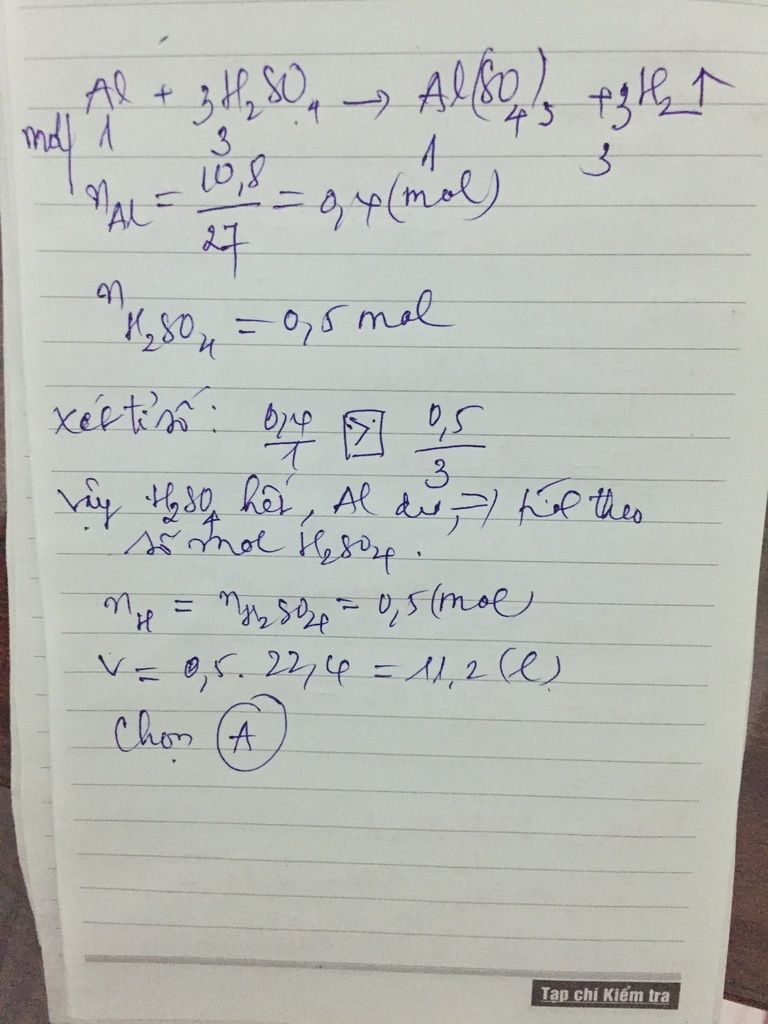 Al + 3H₂SO₄ → Al(SO₄)₃ + 3H₂↑
mol 1 3 1 3
n Al = 10,8/27 = 0,4 (mol)
n H₂SO₄ = 0,5 mol
xét tỉ số: 0,4/1 > 0,5/3
Vậy H₂SO₄ hết, Al dư, => tính theo
số mol H₂SO₄.
n H = n H₂SO₄ = 0,5 (mol)
V = 0,5. 22,4 = 11,2 (l)
Chọn A
Tạp chí Kiểm tra